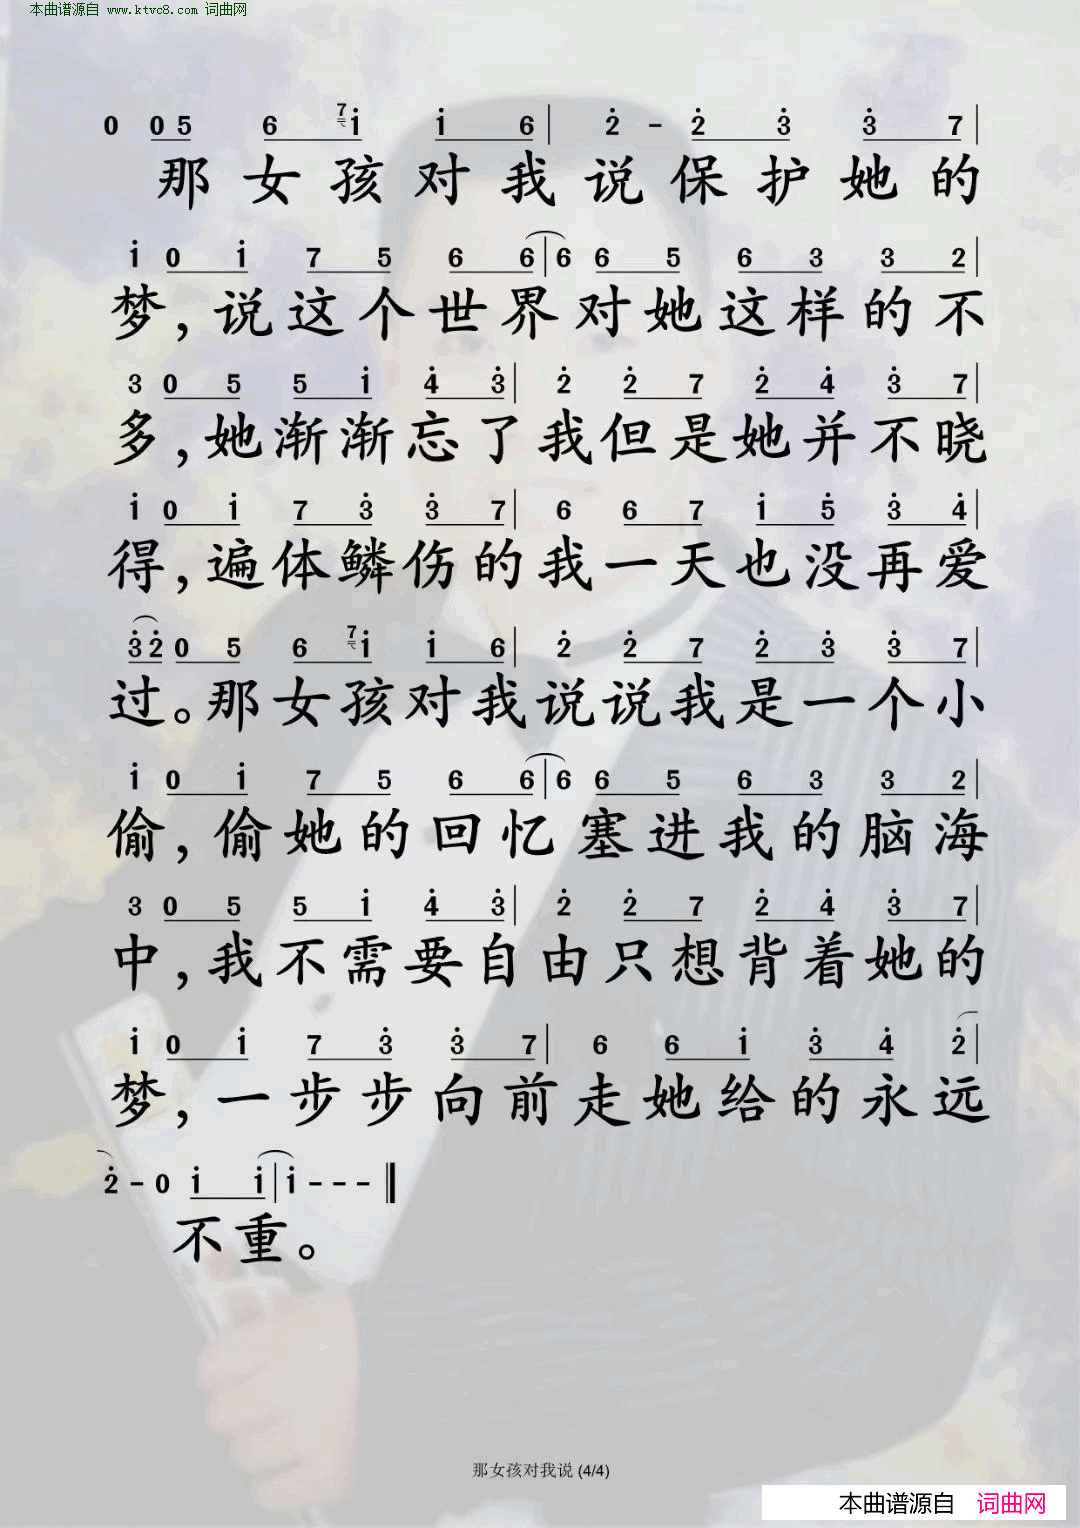 本曲谱源自 www.ktvc8.com 词曲网
0 0 5 6 7 i i 6 | 2 - 2 3 3 7 |
那女孩对我说保护她的
i 0 i 7 5 6 6 | 6 6 5 6 3 3 2 |
梦,说这个世界对她这样的不
3 0 5 5 i 4 3 | 2 2 7 2 4 3 7 |
多,她渐渐忘了我但是她并不晓
i 0 i 7 3 3 7 | 6 6 7 i 5 3 4 |
得,遍体鳞伤的我一天也没再爱
3 2 0 5 6 7 i i 6 | 2 2 7 2 3 3 7 |
过。那女孩对我说说我是一个小
i 0 i 7 5 6 6 | 6 6 5 6 3 3 2 |
偷,偷她的回忆塞进我的脑海
3 0 5 5 i 4 3 | 2 2 7 2 4 3 7 |
中,我不需要自由只想背着她的
i 0 i 7 3 3 7 | 6 6 i 3 4 2 |
梦,一步步向前走她给的永远
2 - 0 i i | i - - - ‖
不重。
那女孩对我说 (4/4)
本曲谱源自 词曲网